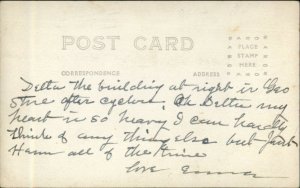 POST CARD
PLACE
STAMP
HERE
CORRESPONDENCE
ADDRESS
Delta the building at right is Geo
Store after cyclone. Oh Delta my
heart is so heavy I can hardly
think of any thing else but Just
all of the time
love Emma